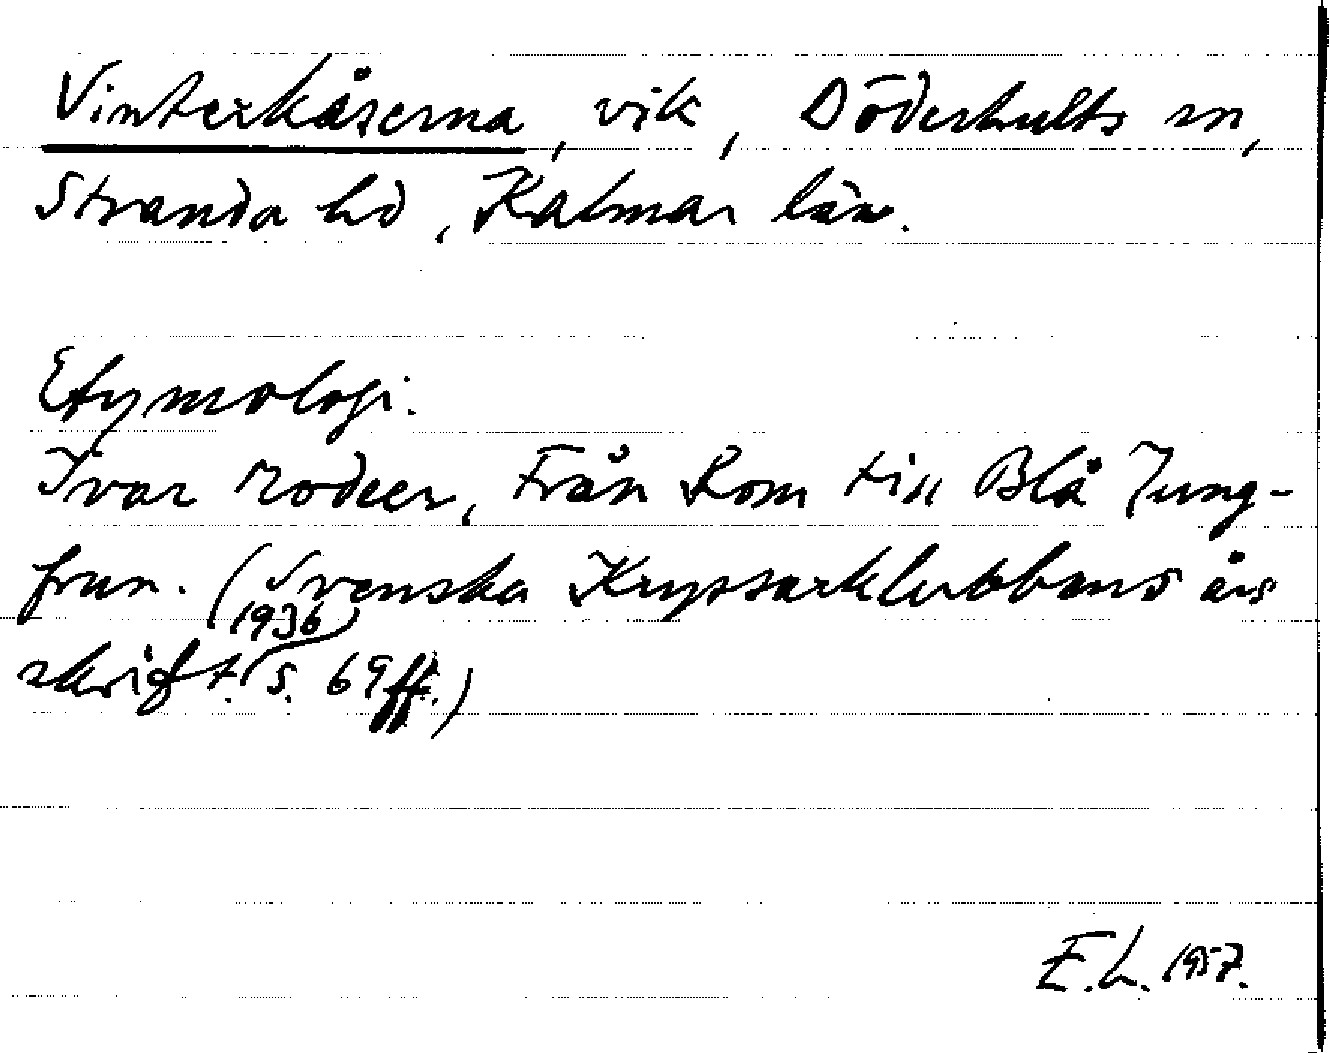 Vinterkåserna, vik, Döderhults sn,
Stranda hd, Kalmar län.
Etymologi.
Ivar Modéer, Från Rom till Blå Jung-
frun. (Svenska Kryssarklubbens års
skrift. 1936) s. 69 ff.)
E.L. 1957.